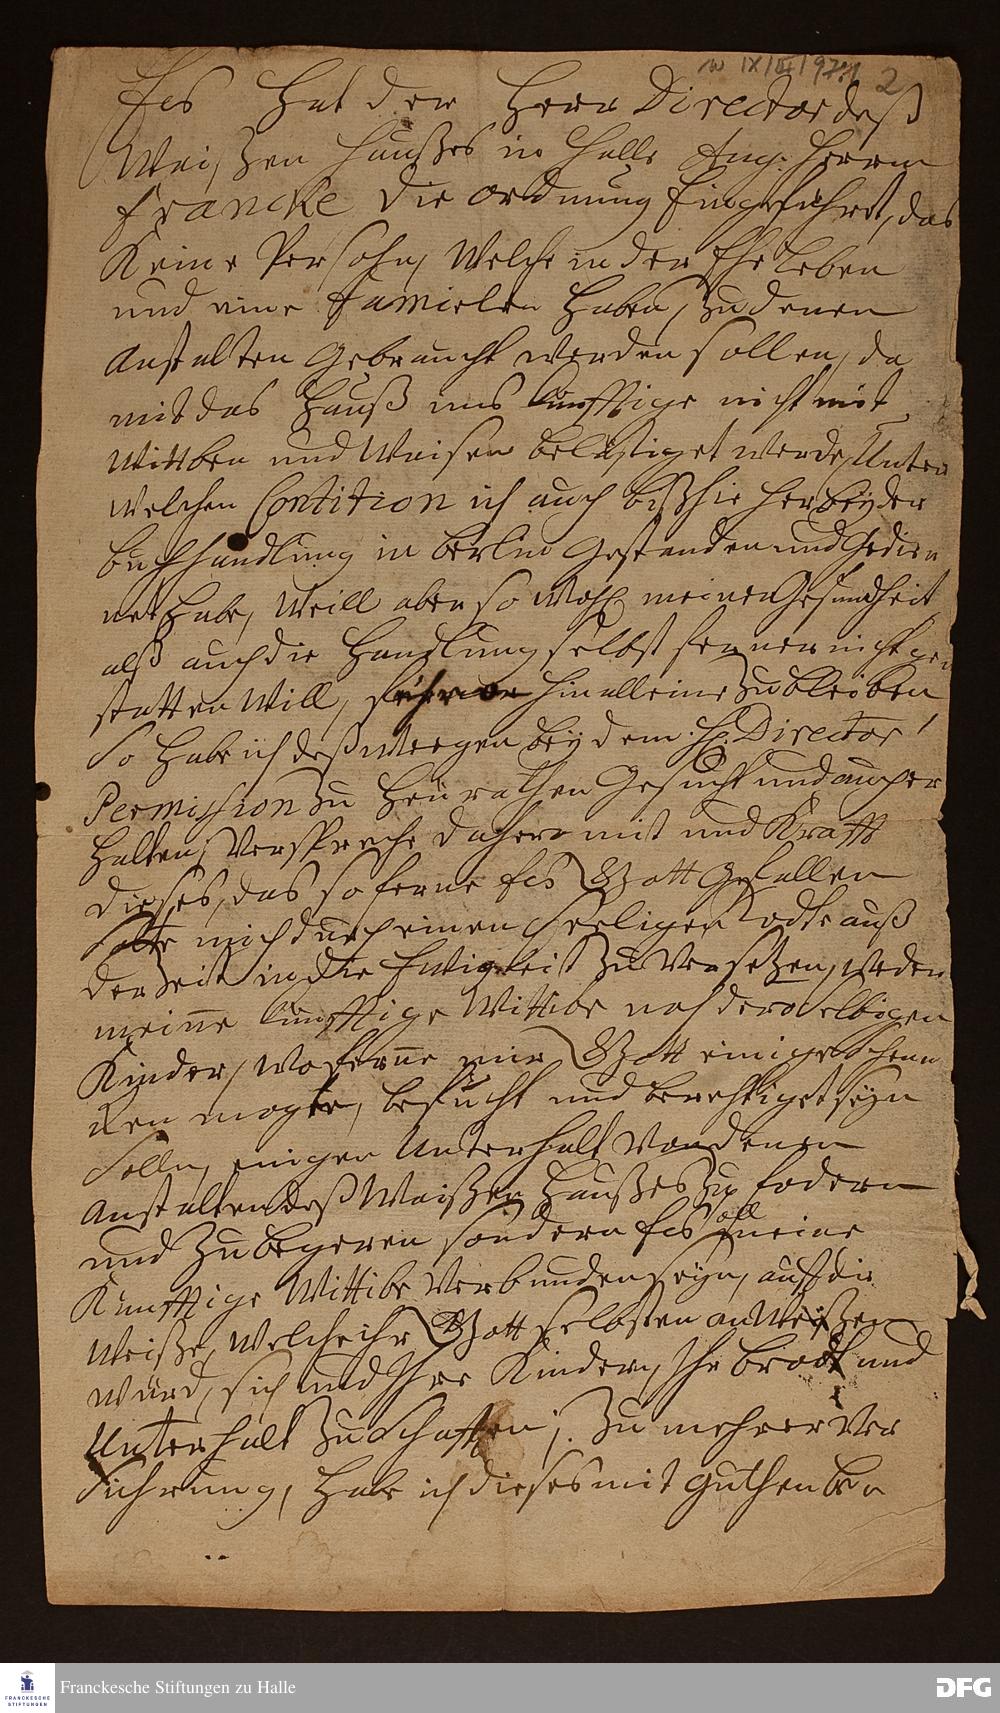 W IX/III/97:1 2
Es Hat der Herr Director deß
Waißen Haußes in Halle Aug: Herrm
Francke die ordnung Eingeführet, das
Keine Persohn, Welche in der Ehe Leben
und eine Famielen Haben, zu denen
Anstalten Gebraucht werden sollen, da
mit das Hauß ins künfftige nicht mit
Wittben und Waisen belästiget werde, Unter
welchen Contition ich auch bißhie her bey der
buchhandlung in berlin Gestanden und Gedie
net habe, Weill aber so wohl meiner Gesundheit
alß auch die Handlung selbst ferner nicht ge
statten Will, hin alleine zu bleiben
So Habe ich deßweegen bey dem H. Director
Permission zu Heürathen Gesucht und auch er
Halten, Verspreche dahero mit und Krafft
dieses, das so ferne Es Gott Gefallen
solte mich durch einen Seeligen Todte auß
der Zeit in die Ewigkeit zu Versetzen, weder
meine künfftige Wittibe noch deroselbigen
Kinder, woferne mir Gott einige schenn
cken mogte, befucht und berechtiget seyn
Solln, einigen Unterhalt Von denen
Anstalten deß Waißen Haußes zu fodern
und zu begeren sondern Es soll meine
Künfftige Wittibe Verbunden seyn, auff die
Weiße, Welche ihr Gott selbsten anWeißen
würd, sich und Ihre Kindern, Ihr brodt und
Unterhalt zu Schaffen; Zu mehrer Ver
Sichrung, Habe ich dieses mit guthen be
FRANCKESCHE
STIFTUNGEN
Franckesche Stiftungen zu Halle
DFG